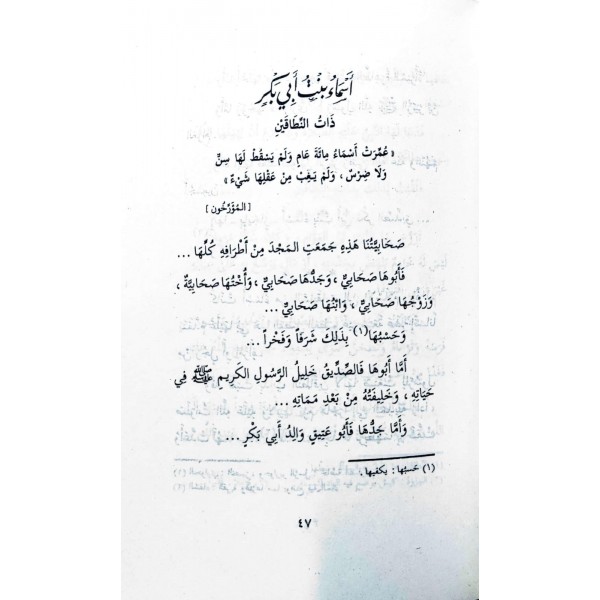 أَسْمَاءُ بِنْتُ أَبِي بَكْرٍ
ذَاتُ النِّطَاقَيْنِ
« عُمِّرَتْ أَسْمَاءُ مِائَةَ عَامٍ وَلَمْ يَسْقُطْ لَهَا سِنٌّ
وَلَا ضِرْسٌ ، وَلَمْ يَغِبْ مِنْ عَقْلِهَا شَيْءٌ »
[ المُؤَرِّخُون ]
صَحَابِيَّتُنَا هَذِهِ جَمَعَتِ المَجْدَ مِنْ أَطْرَافِهِ كُلِّهَا ...
فَأَبُوهَا صَحَابِيٌّ ، وَجَدُّهَا صَحَابِيٌّ ، وَأُخْتُهَا صَحَابِيَّةٌ ،
وَزَوْجُهَا صَحَابِيٌّ ، وَابْنُهَا صَحَابِيٌّ ...
وَحَسْبُهَا(١) بِذَلِكَ شَرَفاً وَفَخْراً ...
أَمَّا أَبُوهَا فَالصِّدِّيقُ خَلِيلُ الرَّسُولِ الكَرِيمِ ﷺ فِي
حَيَاتِهِ ، وَخَلِيفَتُهُ مِنْ بَعْدِ مَمَاتِهِ ...
وَأَمَّا جَدُّهَا فَأَبُو عَتِيقٍ وَالِدُ أَبِي بَكْرٍ ...
(١) حَسبُها : يكفيها .
٤٧